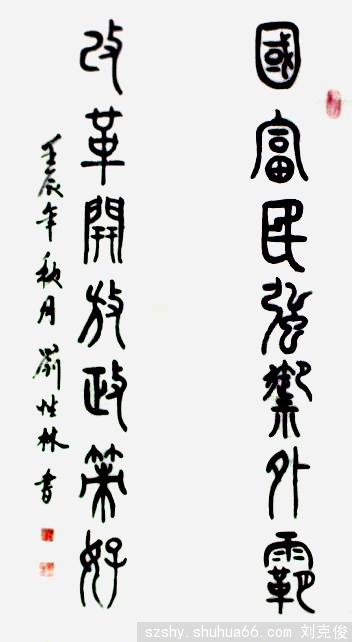 國富民强禦外霸
改革開放政策好
壬辰年秋月劉性林書
szshy.shuhua66.com 刘克俊